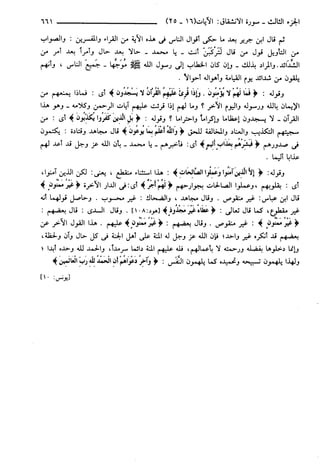 الجزء الثالث - سورة الانشقاق: الآيات(١٦ - ٢٥) ٦٦١
ثم قال ابن جرير بعد ما حكى أقوال الناس في هذه الآية من القراء والمفسرين : والصواب
من التأويل قول من قال لَتَرْكَبَنَّ أنت - يا محمد - حالا بعد حال وأمراً بعد أمر من
الشدائد. والمراد بذلك - وإن كان الخطاب إلى رسول الله ﷺ موجهاً - جميع الناس ، وأنهم
يلقون من شدائد يوم القيامة وأهواله أحوالاً .
وقوله : ﴿ فَمَا لَهُمْ لَا يُؤْمِنُونَ . وَإِذَا قُرِئَ عَلَيْهِمُ الْقُرْآنُ لَا يَسْجُدُونَ ﴾ أي : فماذا يمنعهم من
الإيمان بالله ورسوله واليوم الآخر ؟ وما لهم إذا قرئت عليهم آيات الرحمن وكلامه - وهو هذا
القرآن - لا يسجدون إعظاما وإكراماً واحتراما ؟ وقوله : ﴿ بَلِ الَّذِينَ كَفَرُوا يُكَذِّبُونَ ﴾ أي : من
سجيتهم التكذيب والعناد والمخالفة للحق ﴿ وَاللَّهُ أَعْلَمُ بِمَا يُوعُونَ ﴾ قال مجاهد وقتادة : يكتمون
في صدورهم ﴿ فَبَشِّرْهُم بِعَذَابٍ أَلِيمٍ ﴾ أي : فأخبرهم - يا محمد - بأن الله عز وجل قد أعد لهم
عذابا أليما .
وقوله: ﴿ إِلَّا الَّذِينَ آمَنُوا وَعَمِلُوا الصَّالِحَاتِ ﴾ : هذا استثناء منقطع ، يعني: لكن الذين آمنوا،
أي : بقلوبهم ، وعملوا الصالحات بجوارحهم ﴿ لَهُمْ أَجْرٌ ﴾ أي: في الدار الآخرة ﴿ غَيْرُ مَمْنُونٍ ﴾
قال ابن عباس: غير منقوص . وقال مجاهد ، والضحاك : غير محسوب . وحاصل قولهما أنه
غير مقطوع، كما قال تعالى : ﴿ عَطَاءً غَيْرَ مَجْذُوذٍ ﴾ [هود:١٠٨] . وقال السدى : قال بعضهم :
﴿ غَيْرُ مَمْنُونٍ ﴾ : غير منقوص . وقال بعضهم : ﴿ غَيْرُ مَمْنُونٍ ﴾ عليهم . هذا القول الآخر عن
بعضهم قد أنكره غير واحد؛ فإن الله عز وجل له المنة على أهل الجنة في كل حال وآن ولحظة،
وإنما دخلوها بفضله ورحمته لا بأعمالهم، فله عليهم المنة دائما سرمداً، والحمد لله وحده أبدا ؛
ولهذا يلهمون تسبيحه وتحميده كما يلهمون النَّفَس : ﴿ وَآخِرُ دَعْوَاهُمْ أَنِ الْحَمْدُ لِلَّهِ رَبِّ الْعَالَمِينَ ﴾
[يونس: ١٠]